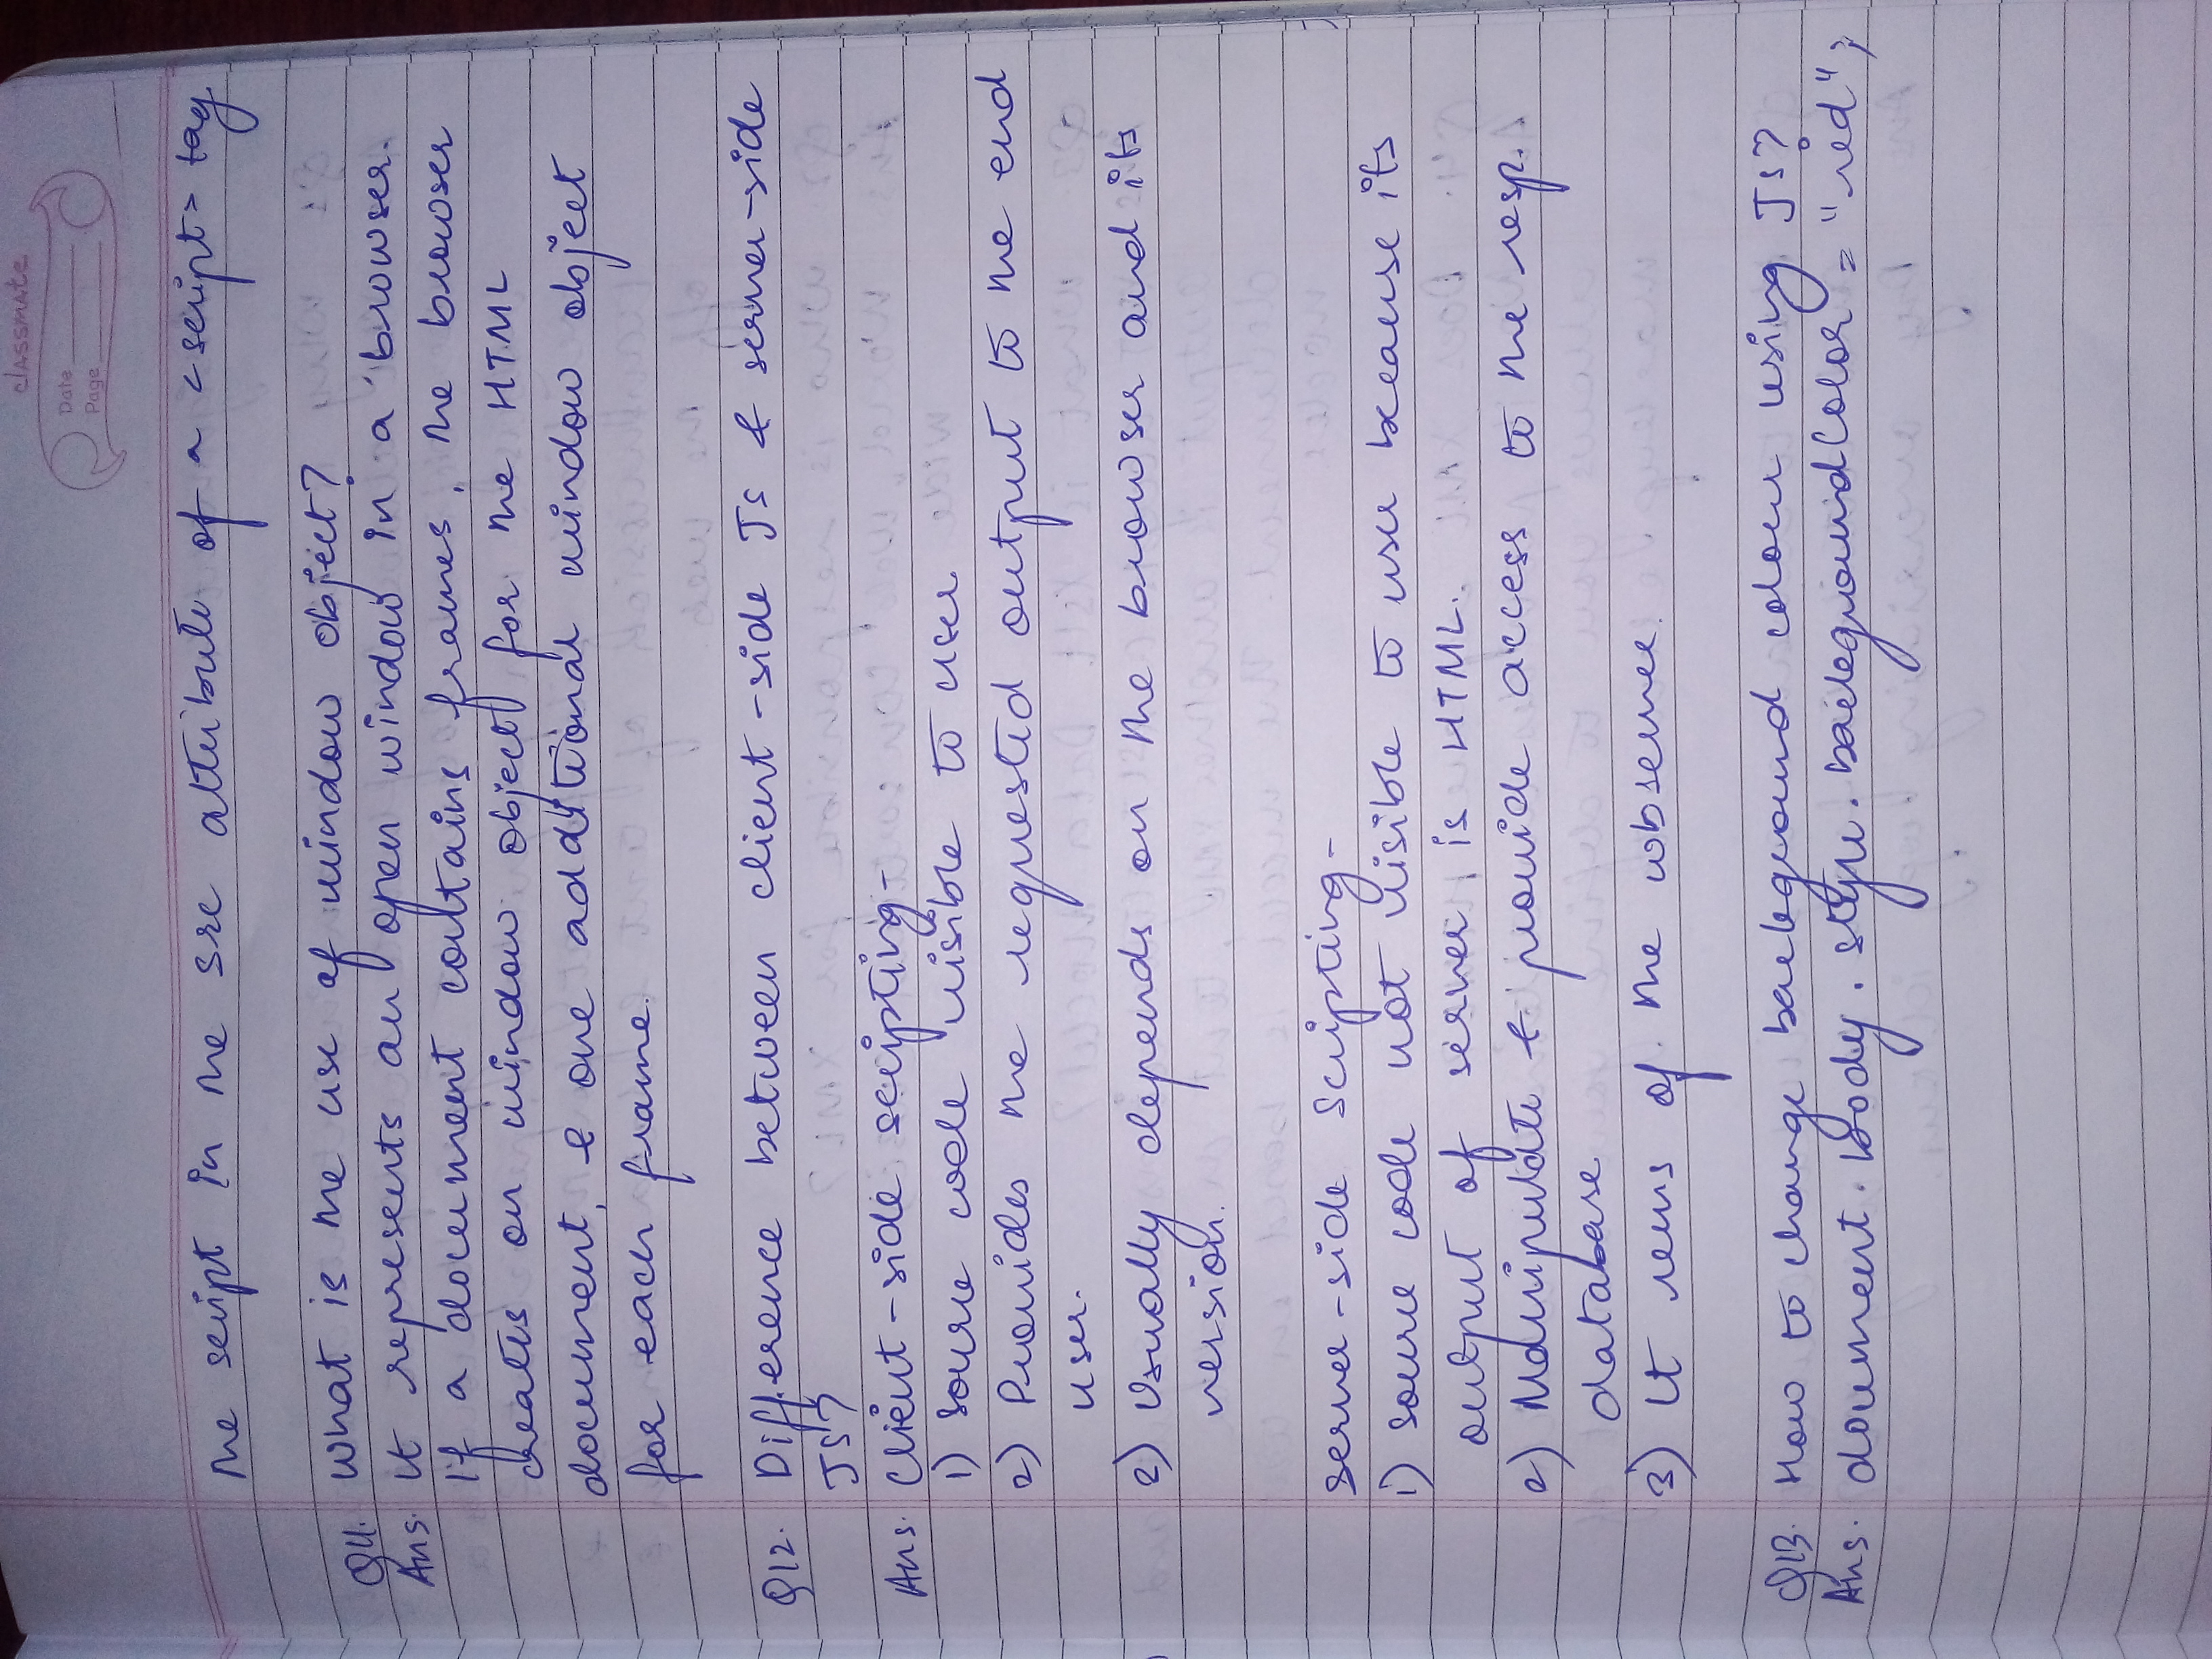 classmate
Date
Page
the script in the src attribute of a <script> tag
Q11. What is the use of window object?
Ans. It represents an open window in a browser.
If a document contains frames, the browser
creates on window object for the HTML
document, & one additional window object
for each frame.
Q12. Difference between client-side JS & server-side
JS?
Ans. Client-side scripting-
1) Source code visible to user
2) Provides the requested output to the end
user.
2) Usually depends on the browser and its
version.
Server-side Scripting-
1) Source code not visible to user because its
output of server is HTML.
2) Manipulate & provide access to the resp.
database
3) It runs of the webserver.
Q13. How to change background colour using JS?
Ans. document.body.style.backgroundColor = "red";